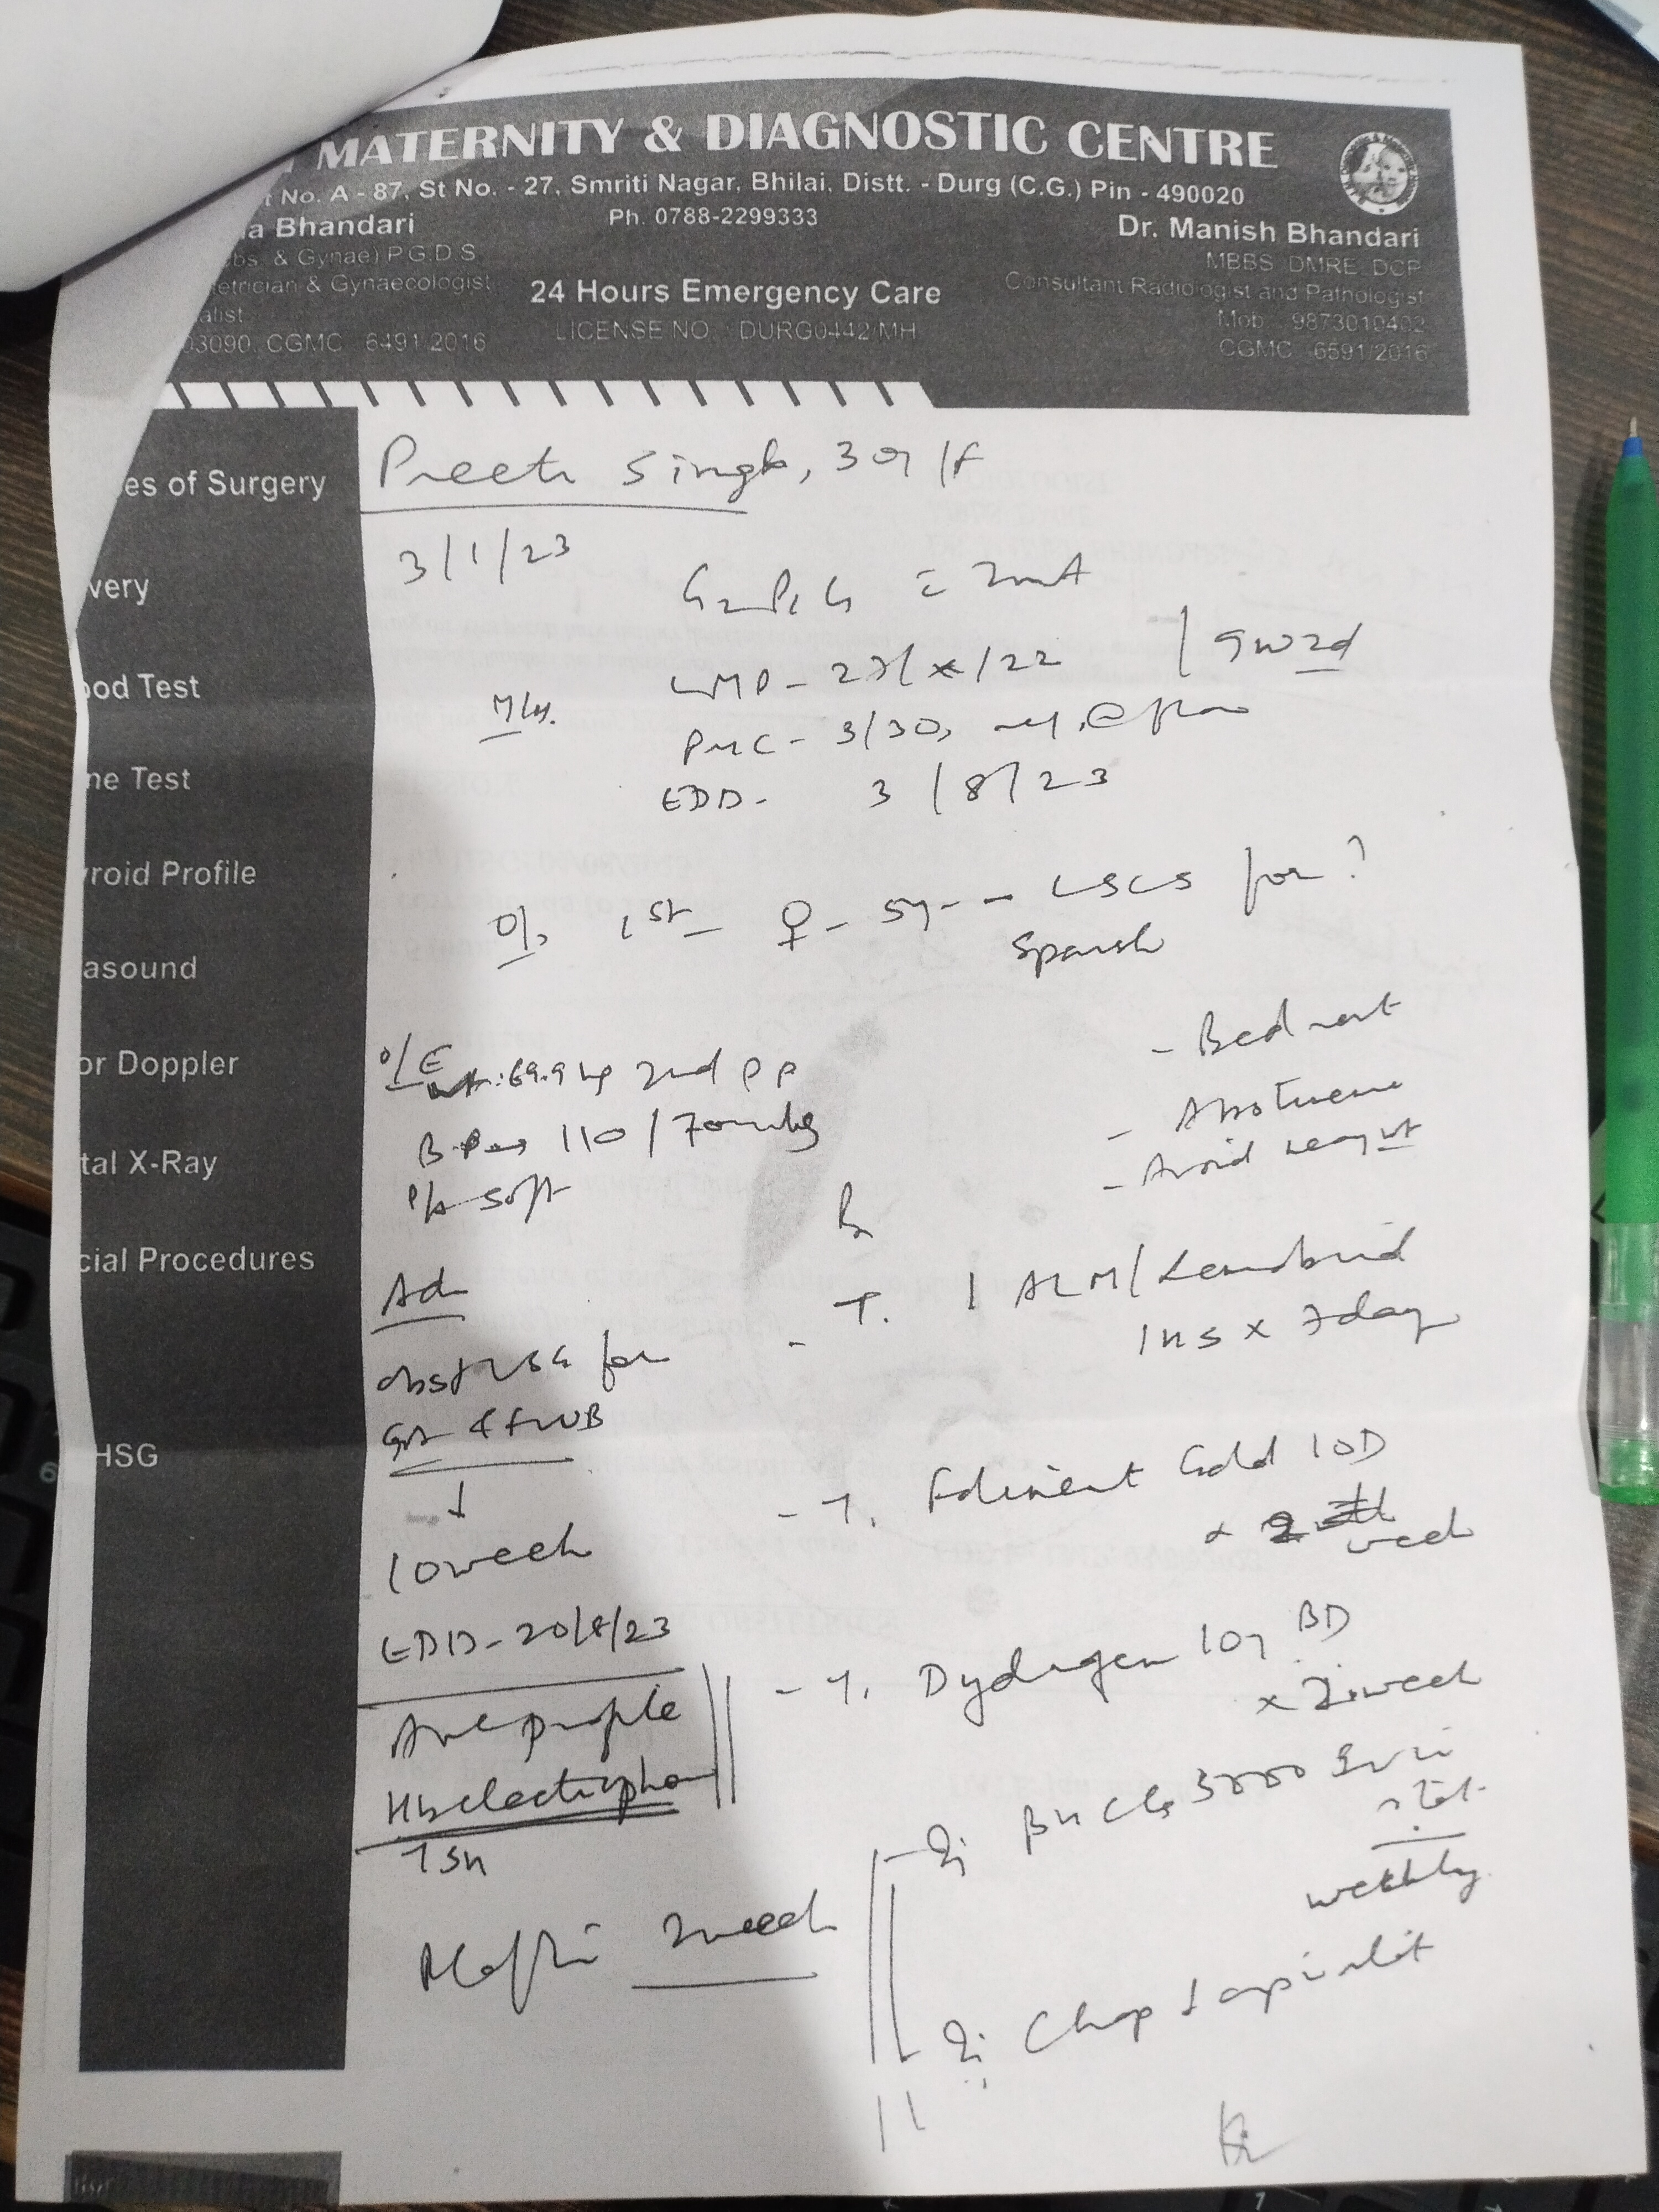 MATERNITY & DIAGNOSTIC CENTRE
No. A - 87, St No. - 27, Smriti Nagar, Bhilai, Distt. - Durg (C.G.) Pin - 490020
Ph. 0788-2299333
a Bhandari
bs. & Gynae) P.G.D.S.
etrician & Gynaecologist
alist
03090, CGMC 6491 2016
24 Hours Emergency Care
LICENSE NO. DURG0442/MH
Dr. Manish Bhandari
MBBS DMRE DCP
Consultant Radiologist and Pathologist
Mob 9873010402
CGMC 6591/2016
es of Surgery
very
ood Test
ne Test
yroid Profile
asound
or Doppler
tal X-Ray
cial Procedures
HSG
Preeti Singh, /F
3/1/23
M/H.
LMP - /22
9w2d
PMC - 3/30,
EDD - 3/8/23
O/H 1st ♀ - 5y - LSCS for?
Sparsh
O/E wt: 69.9 kg
B.P. 110/70 mmHg
P/A soft
- Bed rest
-
- Avoid wt
Adv
Rx
Obst USG for
GA & FWB
↓
10 week
EDD - 20/8/23
ANC profile
Hb electropho
TSH
2 week
- T. 1 ALM/
1 HS x 7 day
- T. Gold 1 OD
x week
- T. Dydrogen 10 BD
x 2 week
- Inj BHCG 5000
stat.
weekly
Inj